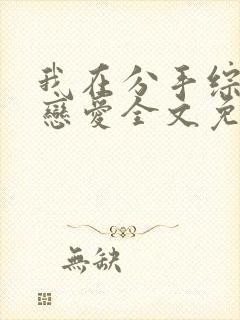 我在分手綜
戀愛全文免
無缺